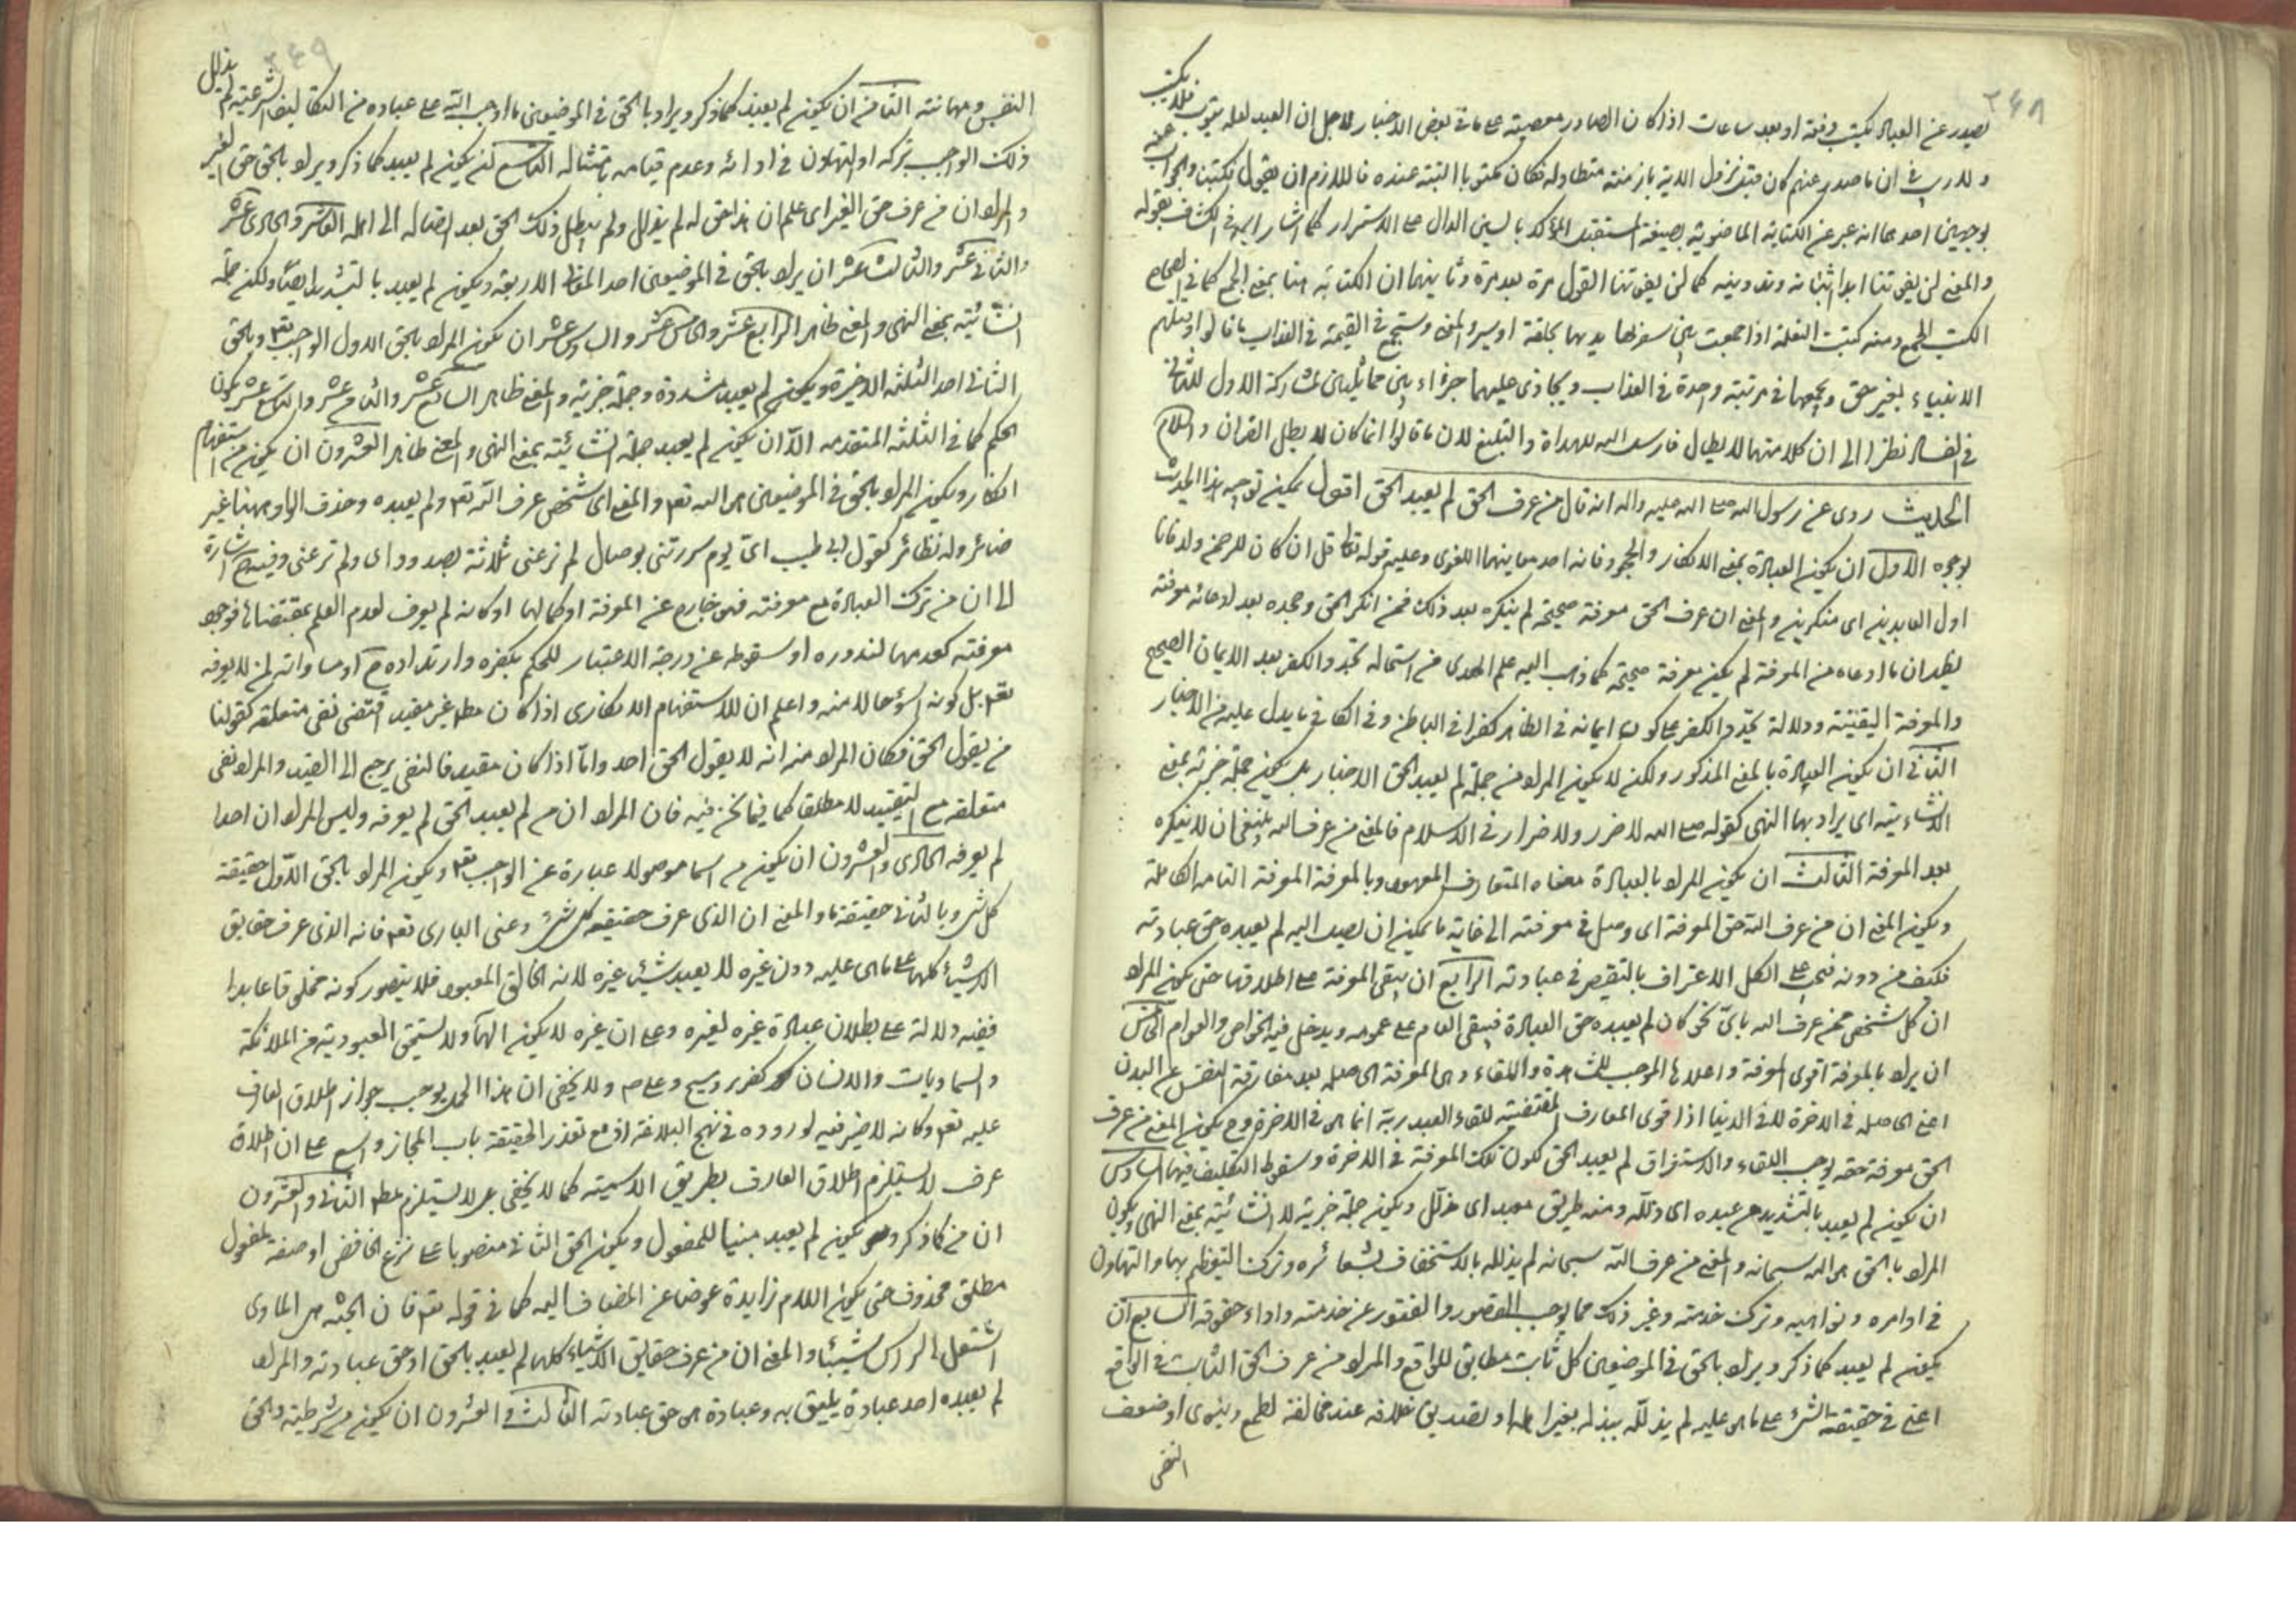 ٢٤٨
يصدر عن العباد يكتب دفعة او بعد ساعات اذا كان الصادر معصية على ما في بعض الاخبار لاجل ان العبد لعله يتوب فلا يكتب
ولا ريب في ان ما صدر عنهم كان قبل نزول الاية بازمنة متطاولة فكان مكتوبا البتة عنده فاللازم ان يقول فكتبنا والجواب عنه
بوجهين احدهما انه عبر عن الكتابة الماضوية بصيغة المستقبل المؤكد بالسين الدال على الاستمرار كما اشار اليه في الكشاف بقوله
والمعنى لن يفوتنا ابدا اثباته وتدوينه كما لن يفوتنا القول مرة بعد مرة وثانيهما ان الكتابة هنا بمعنى الجمع كما في الصحاح
الكتب الجمع ومنه كتبت البغلة اذا جمعت بين شفريها بحلقة او سير والمعنى وسنجمع في القيمة في العذاب ما قالوا وقتلهم
الانبياء بغير حق ونجمعهما في مرتبة واحدة في العذاب ونجازي عليهما جزاء بين متماثلين لمشاركة الاول للثاني
في الفساد نظرا الى ان كلا منهما لابطال فارسد الله للهداة والتبليغ لان ما قالوا انما كان لابطال القران والاسلام
الحديث روى عن رسول الله صلى الله عليه واله انه قال من عرف الحق لم يعبد الحق اقول يمكن توجيه هذا الحديث
بوجوه الاول ان يكون العبادة بمعنى الانكار والجحود فانه احد معانيها اللغوى وعليه قوله تعالى قل ان كان للرحمن ولد فانا
اول العابدين اى منكرين والمعنى ان عرف الحق معرفة صحيحة لم ينكره بعد ذلك فمن انكر الحق وجحده بعد ادعائه معرفته
يظهر ان ما ادعاه من المعرفة لم يكن معرفة صحيحة كما ذهب اليه علم الهدى من استحالة تجدد الكفر بعد الايمان الصحيح
والمعرفة اليقينية ودلالة تجدد الكفر على كون ايمانه في الظاهر كفرا في الباطن وفي الكافي ما يدل عليه من الاخبار
الثاني ان يكون العبادة بالمعنى المذكور ولكن لا يكون المراد من جملة لم يعبد الحق الاخبار بل يكون جملة خبرية بمعنى
الانشائية اى يراد بها النهى كقوله صلى الله لا ضرر ولا ضرار في الاسلام فالمعنى من عرف الله ينبغي ان لا ينكره
بعد المعرفة الثالث ان يكون المراد بالعبادة معناه المتعارف المعهود وبالمعرفة المعرفة التامة الكاملة
ويكون المعنى ان من عرف الله حق المعرفة اى وصل في معرفته الى غاية ما يمكن ان يصل اليه لم يعبده حق عبادته
فكيف من دونه فيجب على الكل الاعتراف بالتقصير في عبادته الرابع ان يبقى المعرفة على اطلاقها حتى يكون المراد
ان كل شخص ممن عرف الله باى نحو كان لم يعبده حق العبادة فيبقى العام على عمومه ويدخل فيه الخواص والعوام الخامس
ان يراد بالمعرفة اقوى المعرفة واعلاها الموجب للمشاهدة واللقاء وهى المعرفة الحاصلة بعد مفارقة النفس عن البدن
اعنى الحاصلة في الاخرة لا في الدنيا اذ اقوى المعارف المقتضية للقاء العبد ربه انما هى في الاخرة وح يكون المعنى من عرف
الحق معرفة حقه يوجب اللقاء والاستغراق لم يعبد الحق لكون تلك المعرفة في الاخرة وسقوط التكليف فيها السادس
ان يكون لم يعبد بالتشديد من عبده اى ذلله ومنه طريق معبد اى مذلل ويكون جملة خبرية لا انشائية بمعنى النهى ويكون
المراد بالحق هو الله سبحانه والمعنى من عرف الله سبحانه لم يذلله بالاستخفاف بشعائره وترك التعظيم بها والتهاون
في اوامره ونواهيه وترك خدمته وغير ذلك مما يوجب القصور والفتور عن خدمته واداء حقوقه السابع ان
يكون لم يعبد كما ذكر ويراد بالحق في الموضعين كل ثابت مطابق للواقع والمراد من عرف الحق الثابت في الواقع
اعنى في حقيقة الشىء على ما هى عليه لم يذلله ببذله بغير اهله او تصديق خلافه عند مخالفة لطمع دنيوى او ضعف
النفس
٢٤٩
النفس ومهانته الثامن ان يكون لم يعبد كما ذكر ويراد بالحق في الموضعين ما اوجب الله على عباده من التكاليف الشرعية لم يذلل
ذلك الواجب بتركه او التهاون في ادائه وعدم قيامه بامتثاله التاسع ان يكون لم يعبد كما ذكر ويراد بالحق حق الغير
والمراد ان من عرف حق الغير اى علم ان هذا حق له لم يذلل ولم يبطل ذلك الحق بعد ايصاله الى اهله العاشر والحادى عشر
والثانى عشر والثالث عشر ان يراد بالحق في الموضعين احد المعانى الاربعة ويكون لم يعبد بالتشديد ايضا ولكن جملة
انشائية بمعنى النهى والمعنى ظاهر الرابع عشر والخامس عشر والسادس عشر ان يكون المراد بالحق الاول الواجب تعم وبالحق
الثانى احد الثلثة الاخيرة ويكون لم يعبد مشددة وجملة خبرية والمعنى ظاهر السابع عشر والثامن عشر والتاسع عشر يكون
الحكم كما في الثلثة المتقدمه الا ان يكون لم يعبد جملة انشائية بمعنى النهى والمعنى ظاهر العشرون ان يكون من استفهام
انكار ويكون المراد بالحق في الموضعين هو الله تعم والمعنى اى شخص عرف الله تعم ولم يعبده وحذف الواو ههنا غير
ضائر وله نظائر كقول ابى طيب اى يوم سررتنى بوصال لم ترعنى ثلاثة بصدود اى ولم ترعنى وفيه اشارة
الى ان من ترك العبادة مع معرفته فهو خارج عن المعرفة او كمالها او كانه لم يعرف لعدم العلم بمقتضاه فوجود
معرفته كعدمها لندوره او سقوطه عن درجة الاعتبار للحكم بكفره وارتداده ح او مساواته لمن لا يعرفه
تعم بل كونه اسوء حالا منه واعلم ان للاستفهام الانكارى اذا كان مطم غير مقيد اقتضى نفى متعلقه كقولنا
من يقول الحق فكان المراد منه انه لا يقول الحق احد واما اذا كان مقيد فالنفى يرجع الى القيد والمراد نفى
متعلقه مع التقييد لا مطلقا كما فيما نحن فيه فان المراد ان من لم يعبد الحق لم يعرفه وليس المراد ان احدا
لم يعرفه الحادى والعشرون ان يكون من اسما موصولا عبارة عن الواجب تعم ويكون المراد بالحق الاول حقيقة
كل شىء وبالثانى حقيقة ما والمعنى ان الذى عرف حقيقة كل شىء وعنى البارى تعم فانه الذى عرف حقايق
الاشياء كلها على ما هى عليه دون غيره لا يعبد شيئ غيره لانه الخالق المعبود فلا يتصور كونه مخلوقا عابدا
ففيه دلالة على بطلان عبادة غيره لغيره وعلى ان غيره لا يكون الها ولا يستحق المعبودية من الملائكة
والسماويات والانسان كعزير ومسيح وعلى ص ولا يخفى ان هذا الحمل يوجب جواز اطلاق العارف
عليه تعم وكانه لا ضير فيه لوروده في نهج البلاغة اذ مع تعذر الحقيقة باب المجاز واسع على ان اطلاق
عرف لا يستلزم اطلاق العارف بطريق الاسمية كما لا يخفى بل لا يستلزم مطم الثانى والعشرون
ان من كما ذكر ويكون لم يعبد مبنيا للمفعول ويكون الحق الثانى منصوبا على نزع الخافض او صفة لمفعول
مطلق محذوف حتى يكون اللام زايدة عوضا عن المضاف اليه كما في قوله تعم فان الجنة هى الماوى
اشتعل الراس شيبا والمعنى ان من عرف حقايق الاشياء كلها لم يعبد بالحق او حق عبادته والمراد
لم يعبده احد عبادة يليق به وعبادة هى حق عبادته الثالث والعشرون ان يكون من شرطية والحق